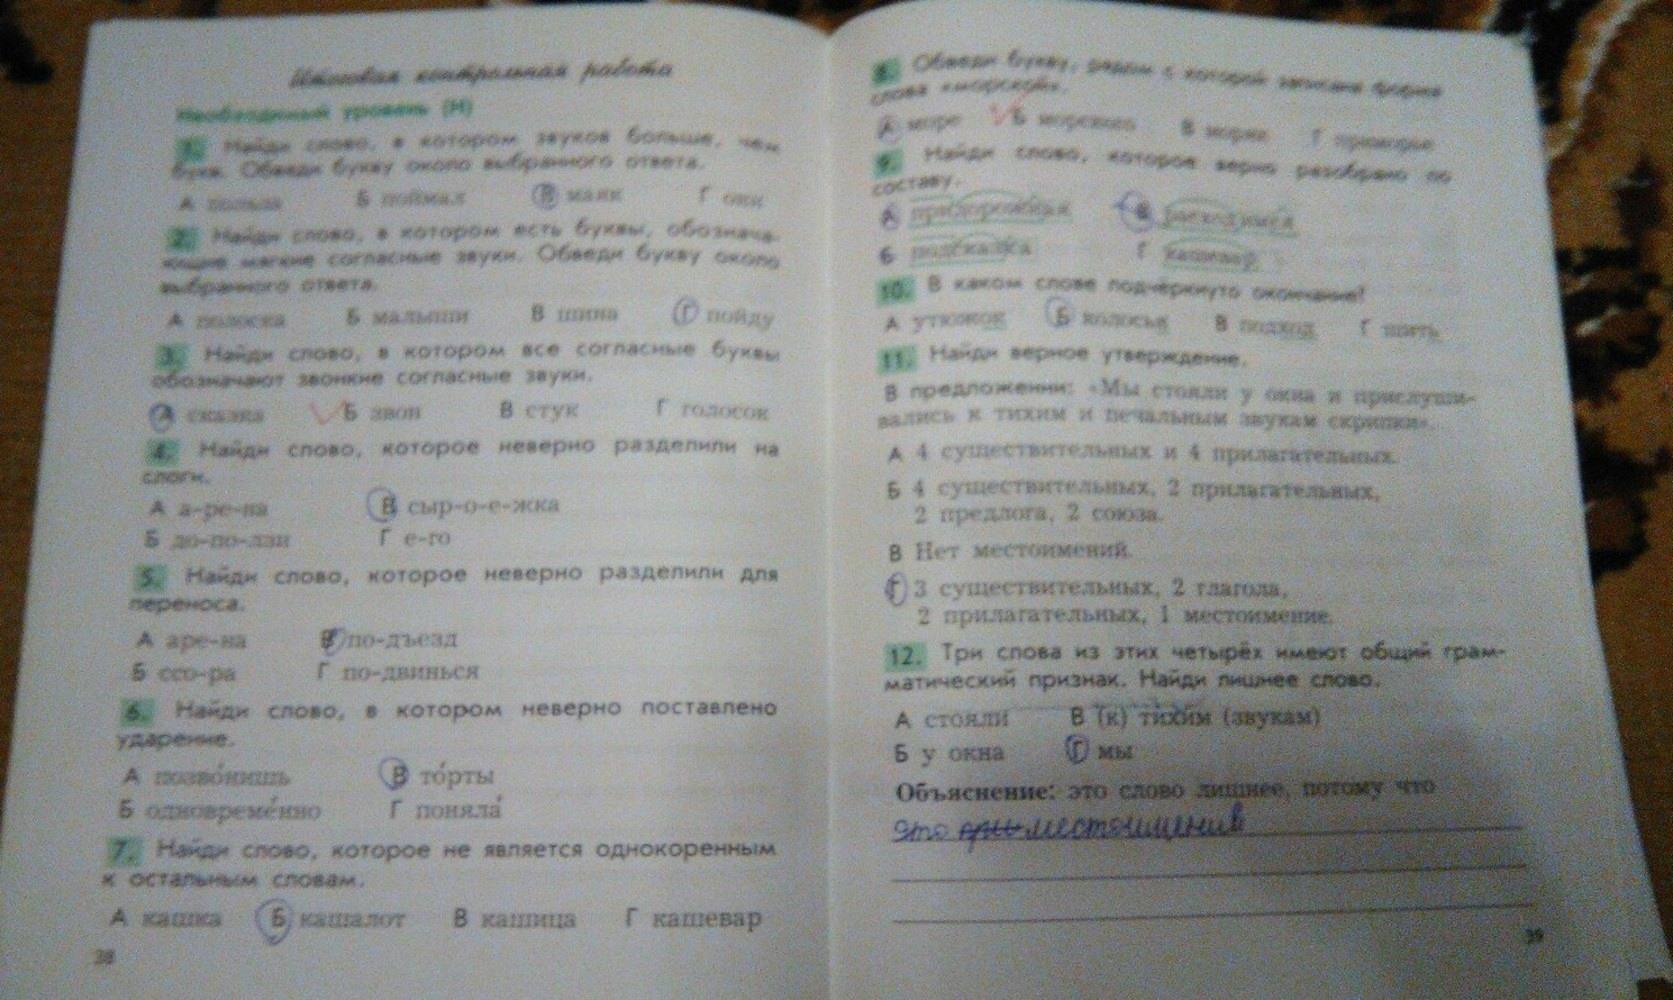 Итоговая контрольная работа
Необходимый уровень (Н)
1. Найди слово, в котором звуков больше, чем
букв. Обведи букву около выбранного ответа.
А польза Б поймал В маяк Г они
2. Найди слово, в котором есть буквы, обознача-
ющие мягкие согласные звуки. Обведи букву около
выбранного ответа.
А полоска Б малыши В шина Г пойду
3. Найди слово, в котором все согласные буквы
обозначают звонкие согласные звуки.
А сказка Б звон В стук Г голосок
4. Найди слово, которое неверно разделили на
слоги.
А а-ре-на В сыр-о-е-жка
Б до-по-лзи Г е-го
5. Найди слово, которое неверно разделили для
переноса.
А аре-на В по-дъезд
Б ссо-ра Г по-двинься
6. Найди слово, в котором неверно поставлено
ударение.
А позво́нишь В то́рты
Б одновреме́нно Г поняла́
7. Найди слово, которое не является однокоренным
к остальным словам.
А кашка Б кашалот В кашица Г кашевар
38
8. Обведи букву, рядом с которой записана форма
слова «морской».
А море Б морского В моряк Г приморье
9. Найди слово, которое верно разобрано по
составу.
А придорожная В
Б подсказка Г кашевар
10. В каком слове подчёркнуто окончание?
А утюжок Б колосья В подход Г шить
11. Найди верное утверждение.
В предложении: «Мы стояли у окна и прислуши-
вались к тихим и печальным звукам скрипки».
А 4 существительных и 4 прилагательных.
Б 4 существительных, 2 прилагательных,
2 предлога, 2 союза.
В Нет местоимений.
Г 3 существительных, 2 глагола,
2 прилагательных, 1 местоимение.
12. Три слова из этих четырёх имеют общий грам-
матический признак. Найди лишнее слово.
А стояли В (к) тихим (звукам)
Б у окна Г мы
Объяснение: это слово лишнее, потому что
это местоимения
39